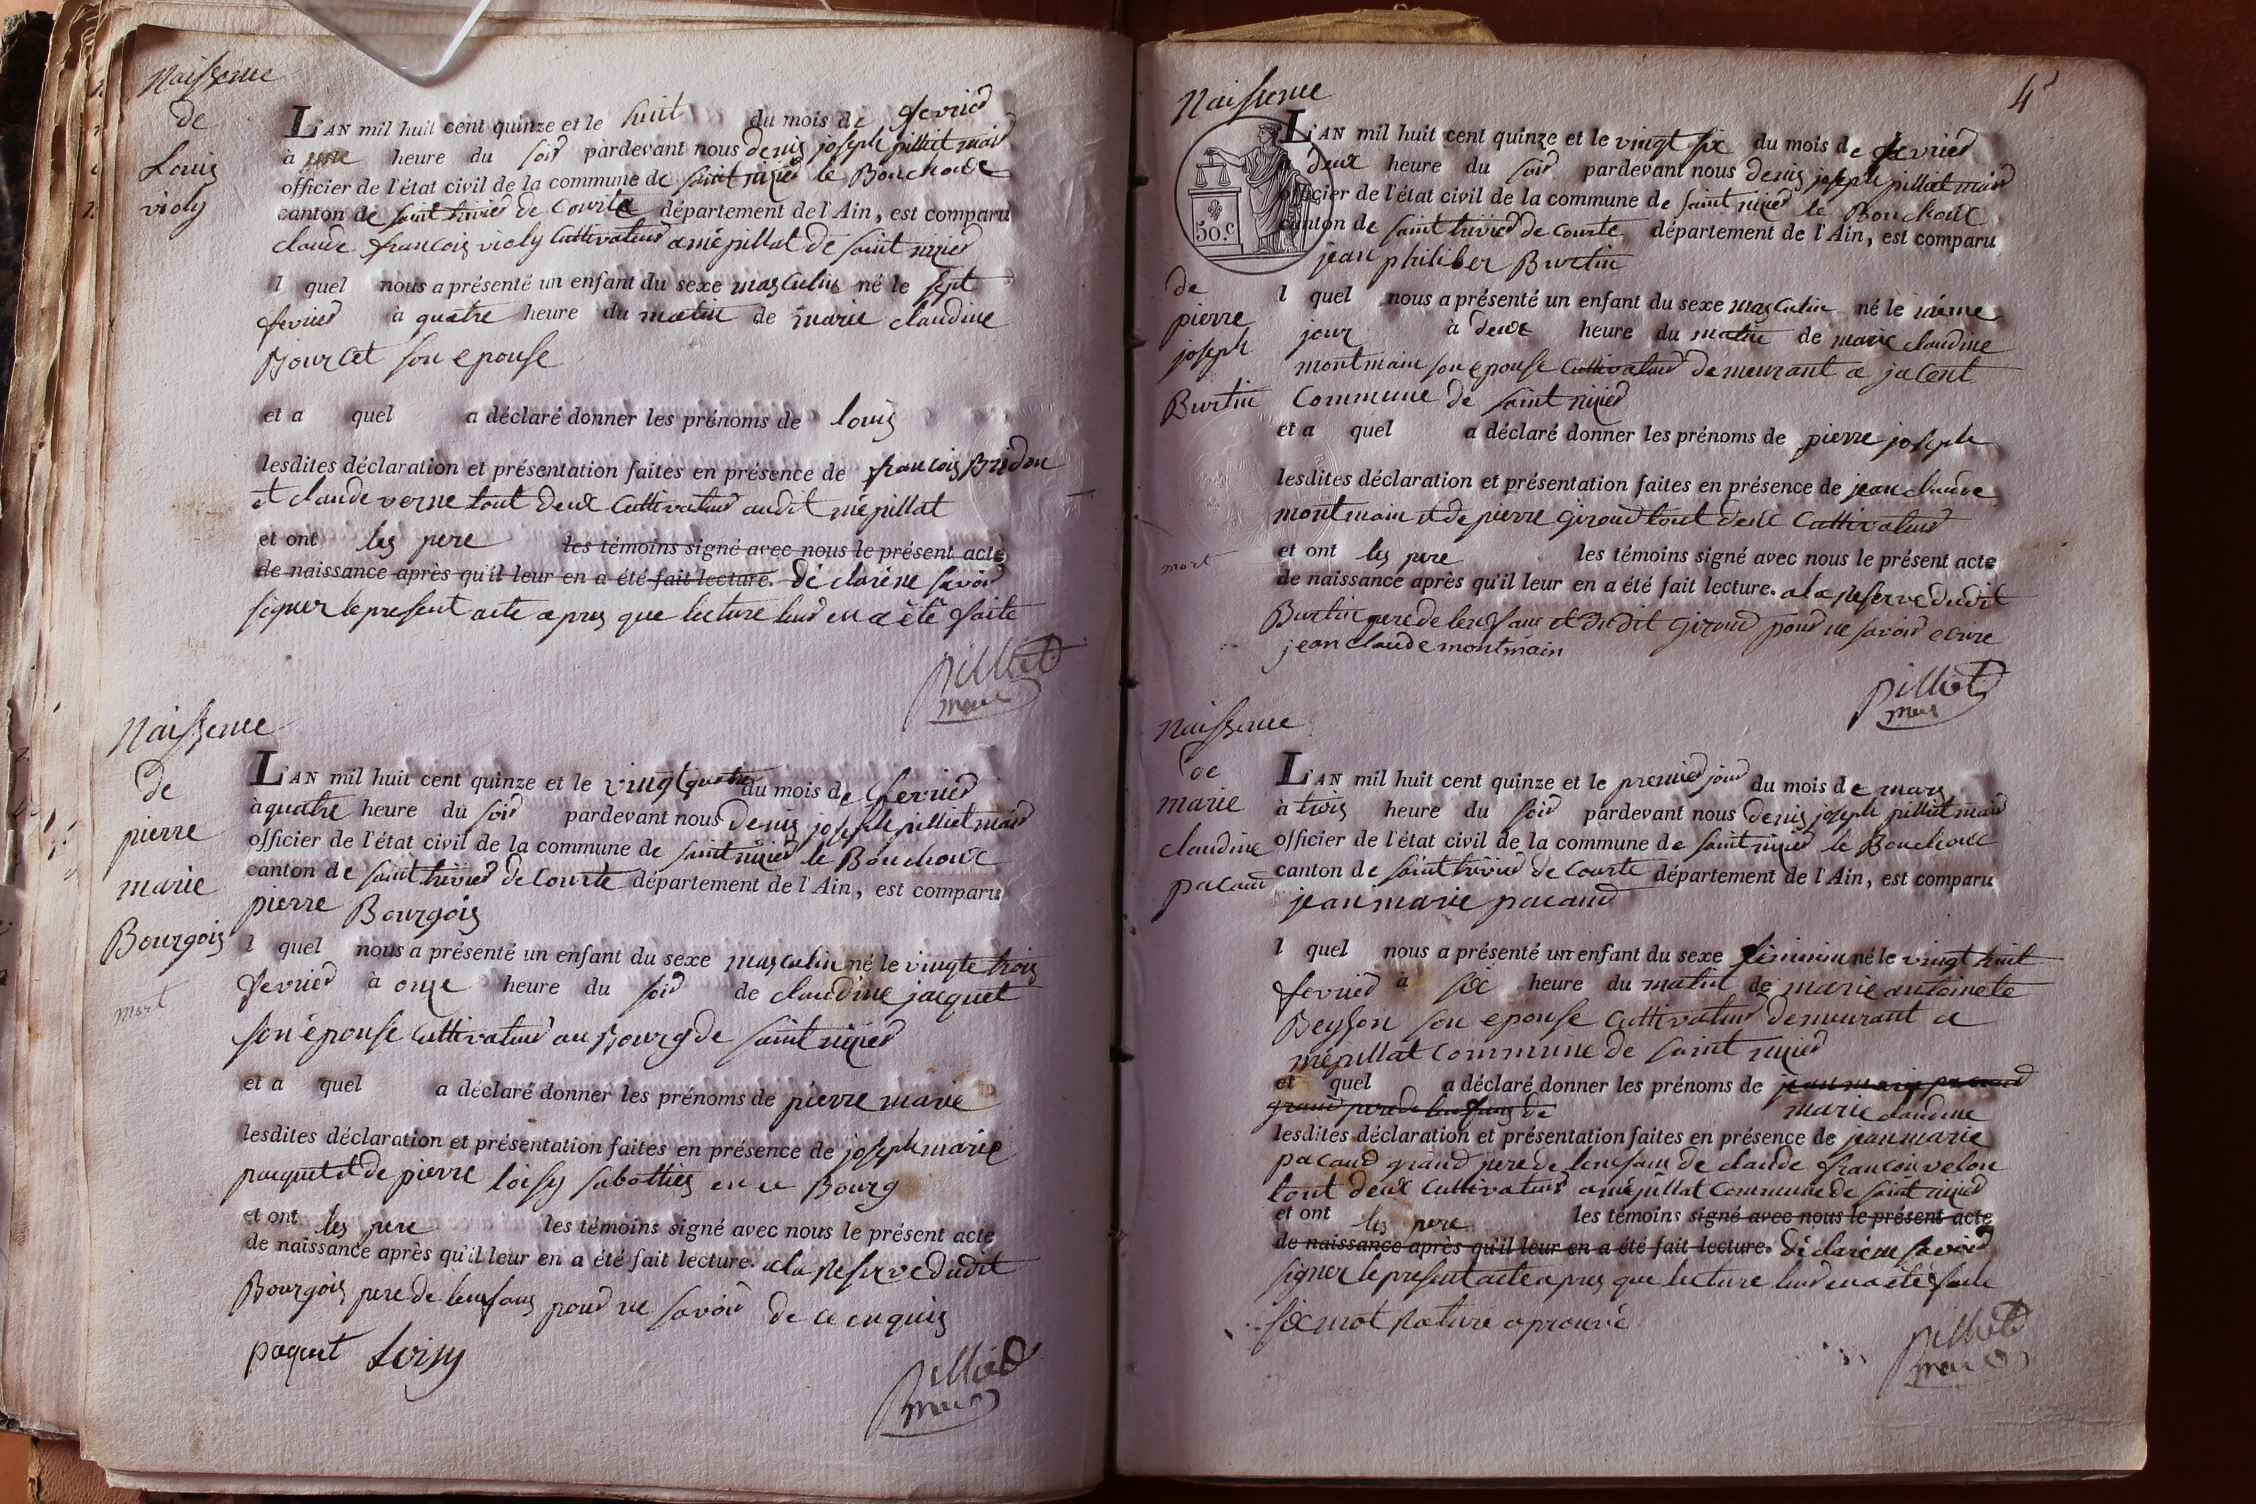 Naissence
de
Louis
violy
L'AN mil huit cent quinze et le huit du mois de fevrier
à une heure du soir pardevant nous denis joseph pilliet maire
officier de l'état civil de la commune de saint nizier le Bouchoux
canton de saint trivier de Courte département de l'Ain, est comparu
claude francois violy Cultivateur a mépillat de saint nizier
l quel nous a présenté un enfant du sexe masculin né le sept
fevrier à quatre heure du matin de marie claudine
son epouse
et a quel a déclaré donner les prénoms de louis
lesdites déclaration et présentation faites en présence de francois Bredon
et claude verne tout deux Cultivateur audit mépillat
et ont les pere les témoins signé avec nous le présent acte
de naissance après qu'il leur en a été fait lecture. déclaré ne savoir
signer le present acte apres que lecture leur en a été faite
pilliet
maire
Naissence
de
pierre
marie
Bourgois
mort
L'AN mil huit cent quinze et le vingt quatre du mois de fevrier
à quatre heure du soir pardevant nous denis joseph pilliet maire
officier de l'état civil de la commune de saint nizier le Bouchoux
canton de saint trivier de Courte département de l'Ain, est comparu
pierre Bourgois
l quel nous a présenté un enfant du sexe masculin né le vingte trois
fevrier à onze heure du soir de claudine jacquet
son épouse Cultivateur au Bourg de saint nizier
et a quel a déclaré donner les prénoms de pierre marie
lesdites déclaration et présentation faites en présence de joseph marie
paquet et de pierre loisy sabottier en ce Bourg
et ont les pere les témoins signé avec nous le présent acte
de naissance après qu'il leur en a été fait lecture. a la reserve dudit
Bourgois pere de lenfans pour ne savoir de ce enquis
paquet Loisy
pilliet
maire
4
Naissence
50.c
de
pierre
joseph
Burtin
mort
L'AN mil huit cent quinze et le vingt six du mois de fevrier
à deux heure du soir pardevant nous denis joseph pilliat maire
officier de l'état civil de la commune de saint nizier le Bouchoux
canton de saint trivier de courte département de l'Ain, est comparu
jean philiber Burtin
l quel nous a présenté un enfant du sexe masculin né le même
jour à deux heure du matin de marie claudine
montmain son epouse Cultivateur demeurant a jacent
Commune de saint nizier
et a quel a déclaré donner les prénoms de pierre joseph
lesdites déclaration et présentation faites en présence de jean claude
montmain et de pierre Giroud tout deux Cultivateur
et ont les pere les témoins signé avec nous le présent acte
de naissance après qu'il leur en a été fait lecture. a la reserve dudit
Burtin pere de lenfans et dudit Giroud pour ne savoir ecrire
jean claude montmain
pilliet
maire
Naissence
de
marie
claudine
pacaud
L'AN mil huit cent quinze et le premier jour du mois de mars
à trois heure du soir pardevant nous denis joseph pilliet maire
officier de l'état civil de la commune de saint nizier le Bouchoux
canton de saint trivier de Courte département de l'Ain, est comparu
jean marie pacaud
l quel nous a présenté un enfant du sexe féminin né le vingt huit
fevrier à six heure du matin de marie antoinete
son epouse Cultivateur demeurant a
mépillat commune de saint nizier
et quel a déclaré donner les prénoms de jean marie pacaud
grand pere de lenfans de marie claudine
lesdites déclaration et présentation faites en présence de jean marie
pacaud grand pere de lenfans de claude francois velon
tout deux Cultivateur a mépillat commune de saint nizier
et ont les pere les témoins signé avec nous le présent acte
de naissance après qu'il leur en a été fait lecture. déclaré ne savoir
signer le present acte apres que lecture leur en a été faite
six mot rature aprouvé
pilliet
maire